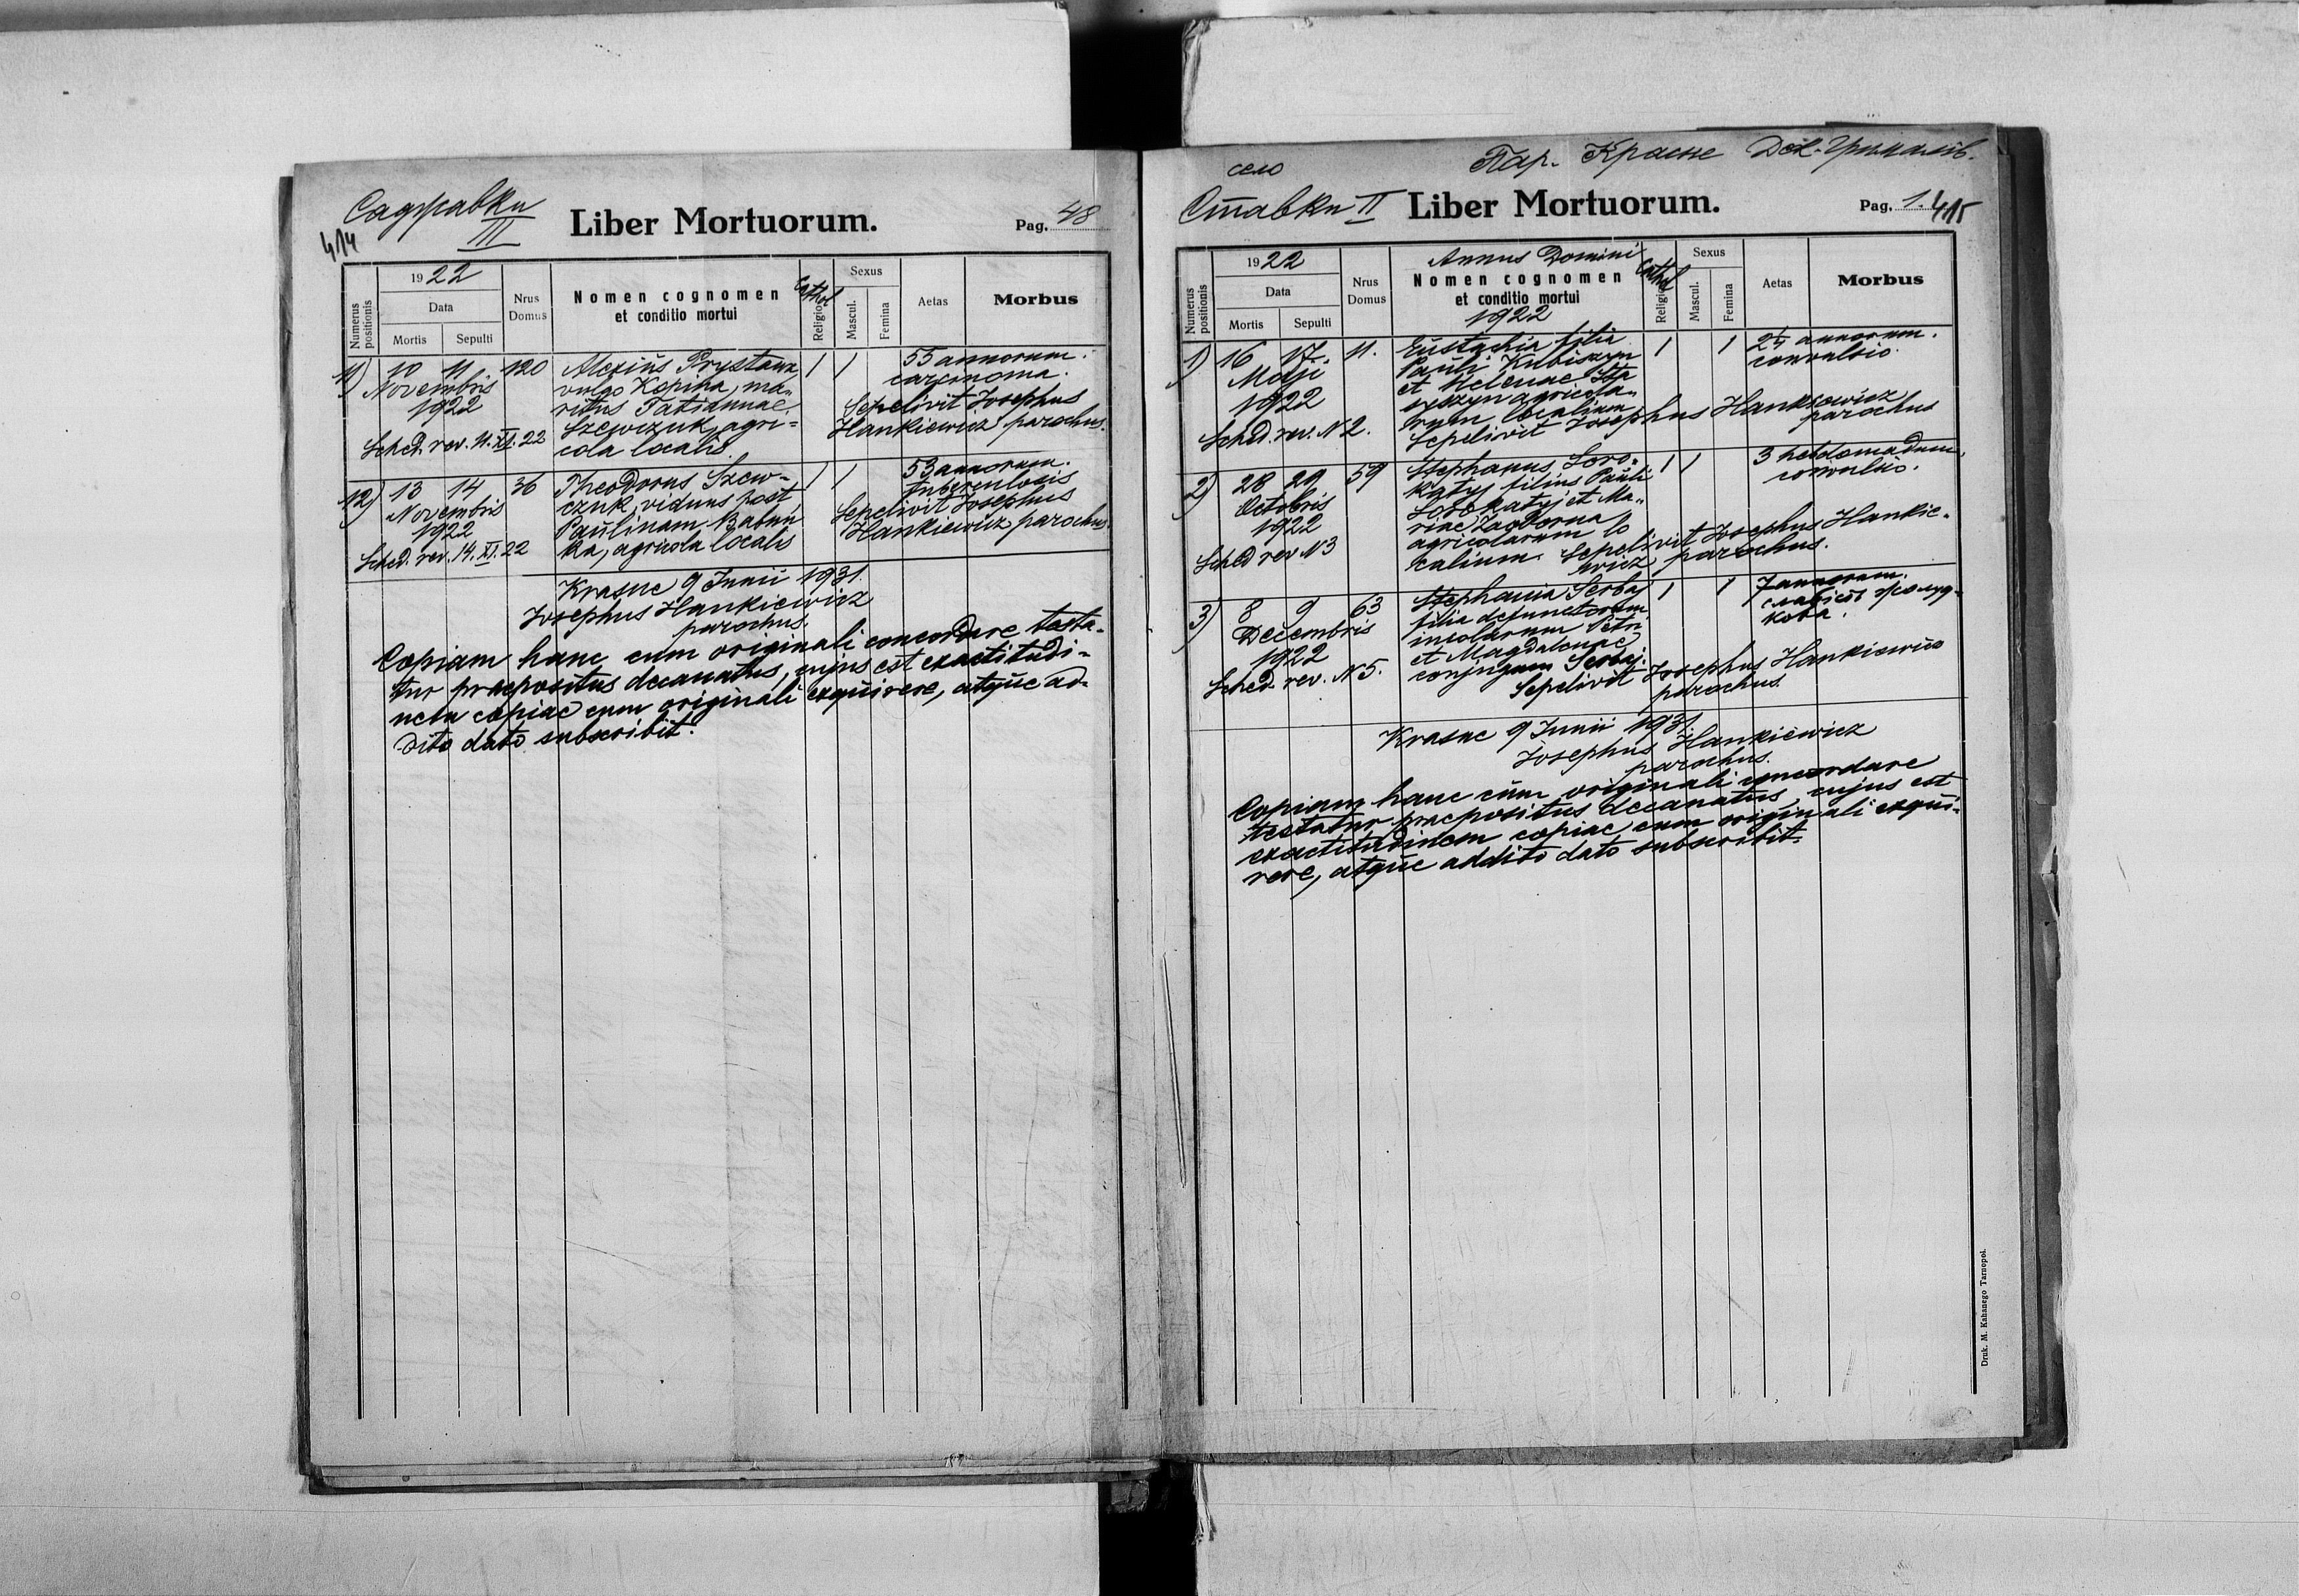 Садравки
III
414
Liber Mortuorum.
Pag. 48
Numerus positionis
1922
Data
Mortis
Sepulti
Nrus Domus
Nomen cognomen
et conditio mortui
Cathol
Religio
Sexus
Mascul.
Femina
Aetas
Morbus
11) 10 11. 120 Alexius Prystasz 1 1 55 annorum.
Novembris vulgo Kopiha, ma- carcinoma.
1922 ritus Tatiannae Sepelivit Josephus
Sched. rev. 11.XI.22 Szewczuk, agri= Hankiewicz parochus.
cola localis.
12) 13 14 36 Theodorus Szew- 1 1 53 annorum.
Novembris czuk, viduus post tuberculosis
1922 Paulinam Babun Sepelivit Josephus
Sched. rev. 14.XI.22 ka, agricola localis Hankiewicz parochus.
Krasne 9 Junii 1931.
Josephus Hankiewicz
parochus.
Copiam hanc cum originali concordare testa-
tur praepositus decanatus, cujus est exactitudi-
nem copiae cum originali exquirere, atque ad-
dito dato subscribit.
село
Пар. Красне Дек. Грималів.
Ставки II
Liber Mortuorum.
Pag. 1. 415
Numerus positionis
1922
Data
Mortis
Sepulti
Nrus Domus
Annus Domini
Nomen cognomen
et conditio mortui
1922
Cathol
Religio
Sexus
Mascul.
Femina
Aetas
Morbus
1) 16 17. 11. Eustachia filia 1 1 annorum.
Maji Pauli Kubiszyn convulsio.
1922 et Helenae Sta
Sched. rev. N 2. agricola-
rum localium
Sepelivit Josephus Hankiewicz
parochus
2) 28 29 59 Stephanus Soro- 1 1 3 hebdomadum,
Octobris katyj filius Pauli convulsio.
1922 Sorokatyj et Ma-
Sched rev N3 riae Zagborna
agricolarum lo
kalium. Sepelivit Josephus Hankie-
wicz parochus.
3) 8 9 63 Stephania Serbaj 1 1 7 annorum.
Decembris filia defunctorum слабість жолуд-
1922 incolarum Petri кова.
Sched. rev. N5. et Magdalenae
conjugum Serbaj.
Sepelivit Josephus Hankiewicz
parochus.
Krasne 9 Junii 1931
Josephus Hankiewicz
parochus.
Copiam hanc cum originali concordare
testatur praepositus decanatus, cujus est
exactitudinem copiae cum originali exqui-
rere, atque addito dato subscribit.
Druk. M. Kahanego Tarnopol.